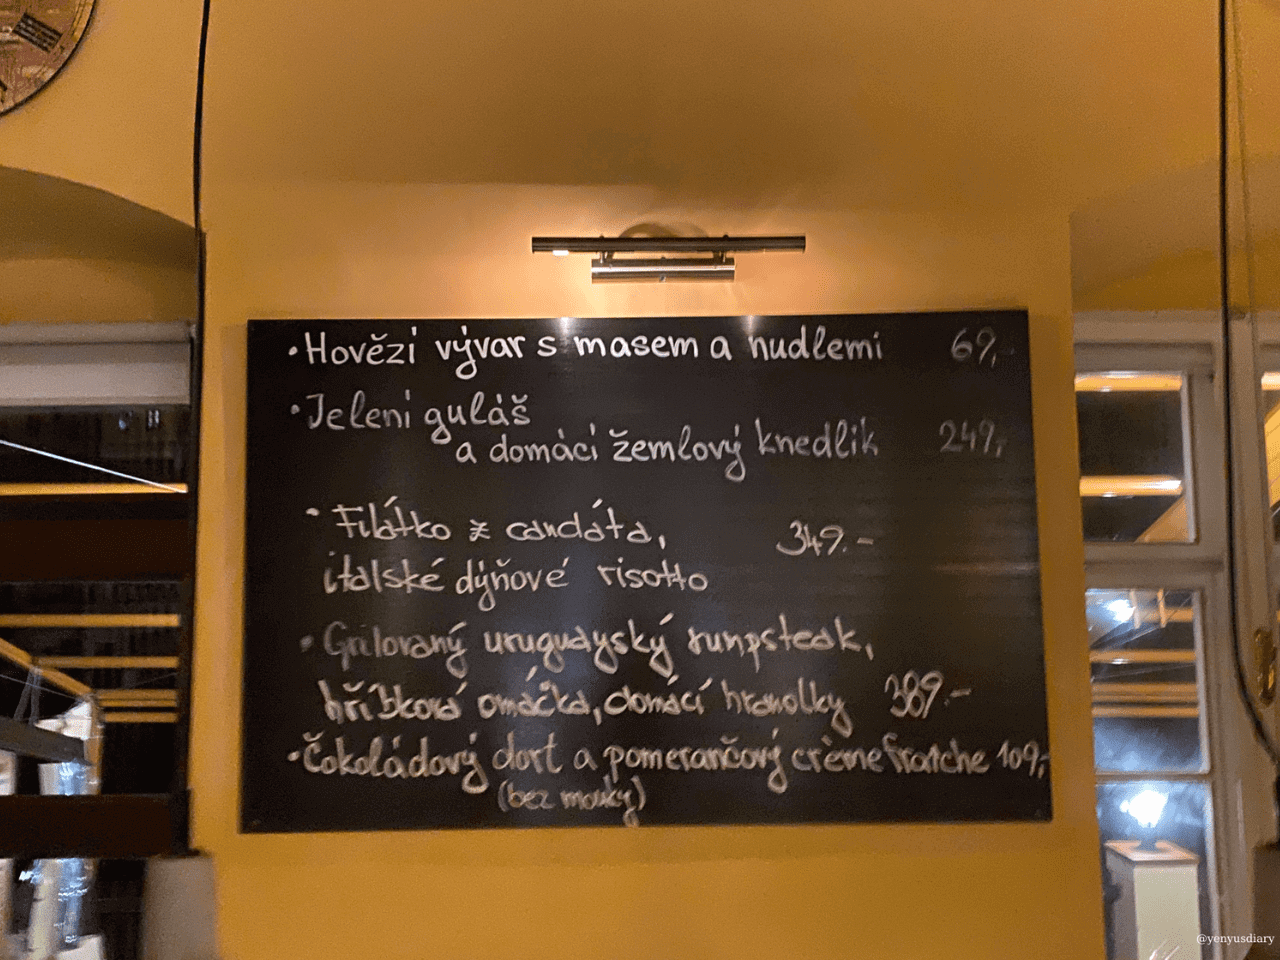 •Hovězí vývar s masem a nudlemi 69,-
•Jelení guláš
a domácí žemlový knedlík 249,-
• Filátko z candáta, 349.-
italské dýňové risotto
• Grilovaný uruguayský rumpsteak,
hříbková omáčka, domácí hranolky 389.-
•Čokoládový dort a pomerančový crème fraîche 109,-
(bez mouky)
@yenyusdiary